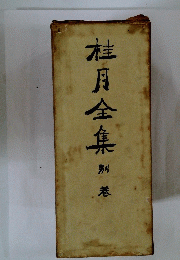 桂月全集 別巻